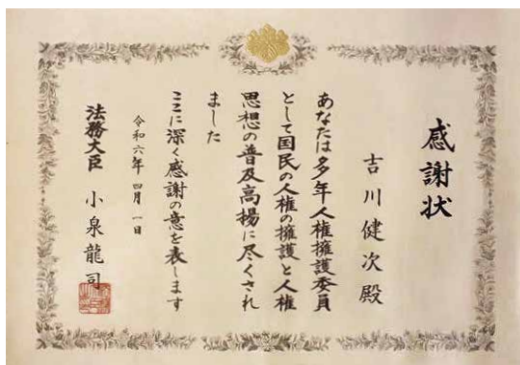 感謝状
吉川健次殿
あなたは多年人権擁護委員
として国民の人権の擁護と人権
思想の普及高揚に尽くされ
ました
ここに深く感謝の意を表します
令和六年四月一日
法務大臣 小泉龍司